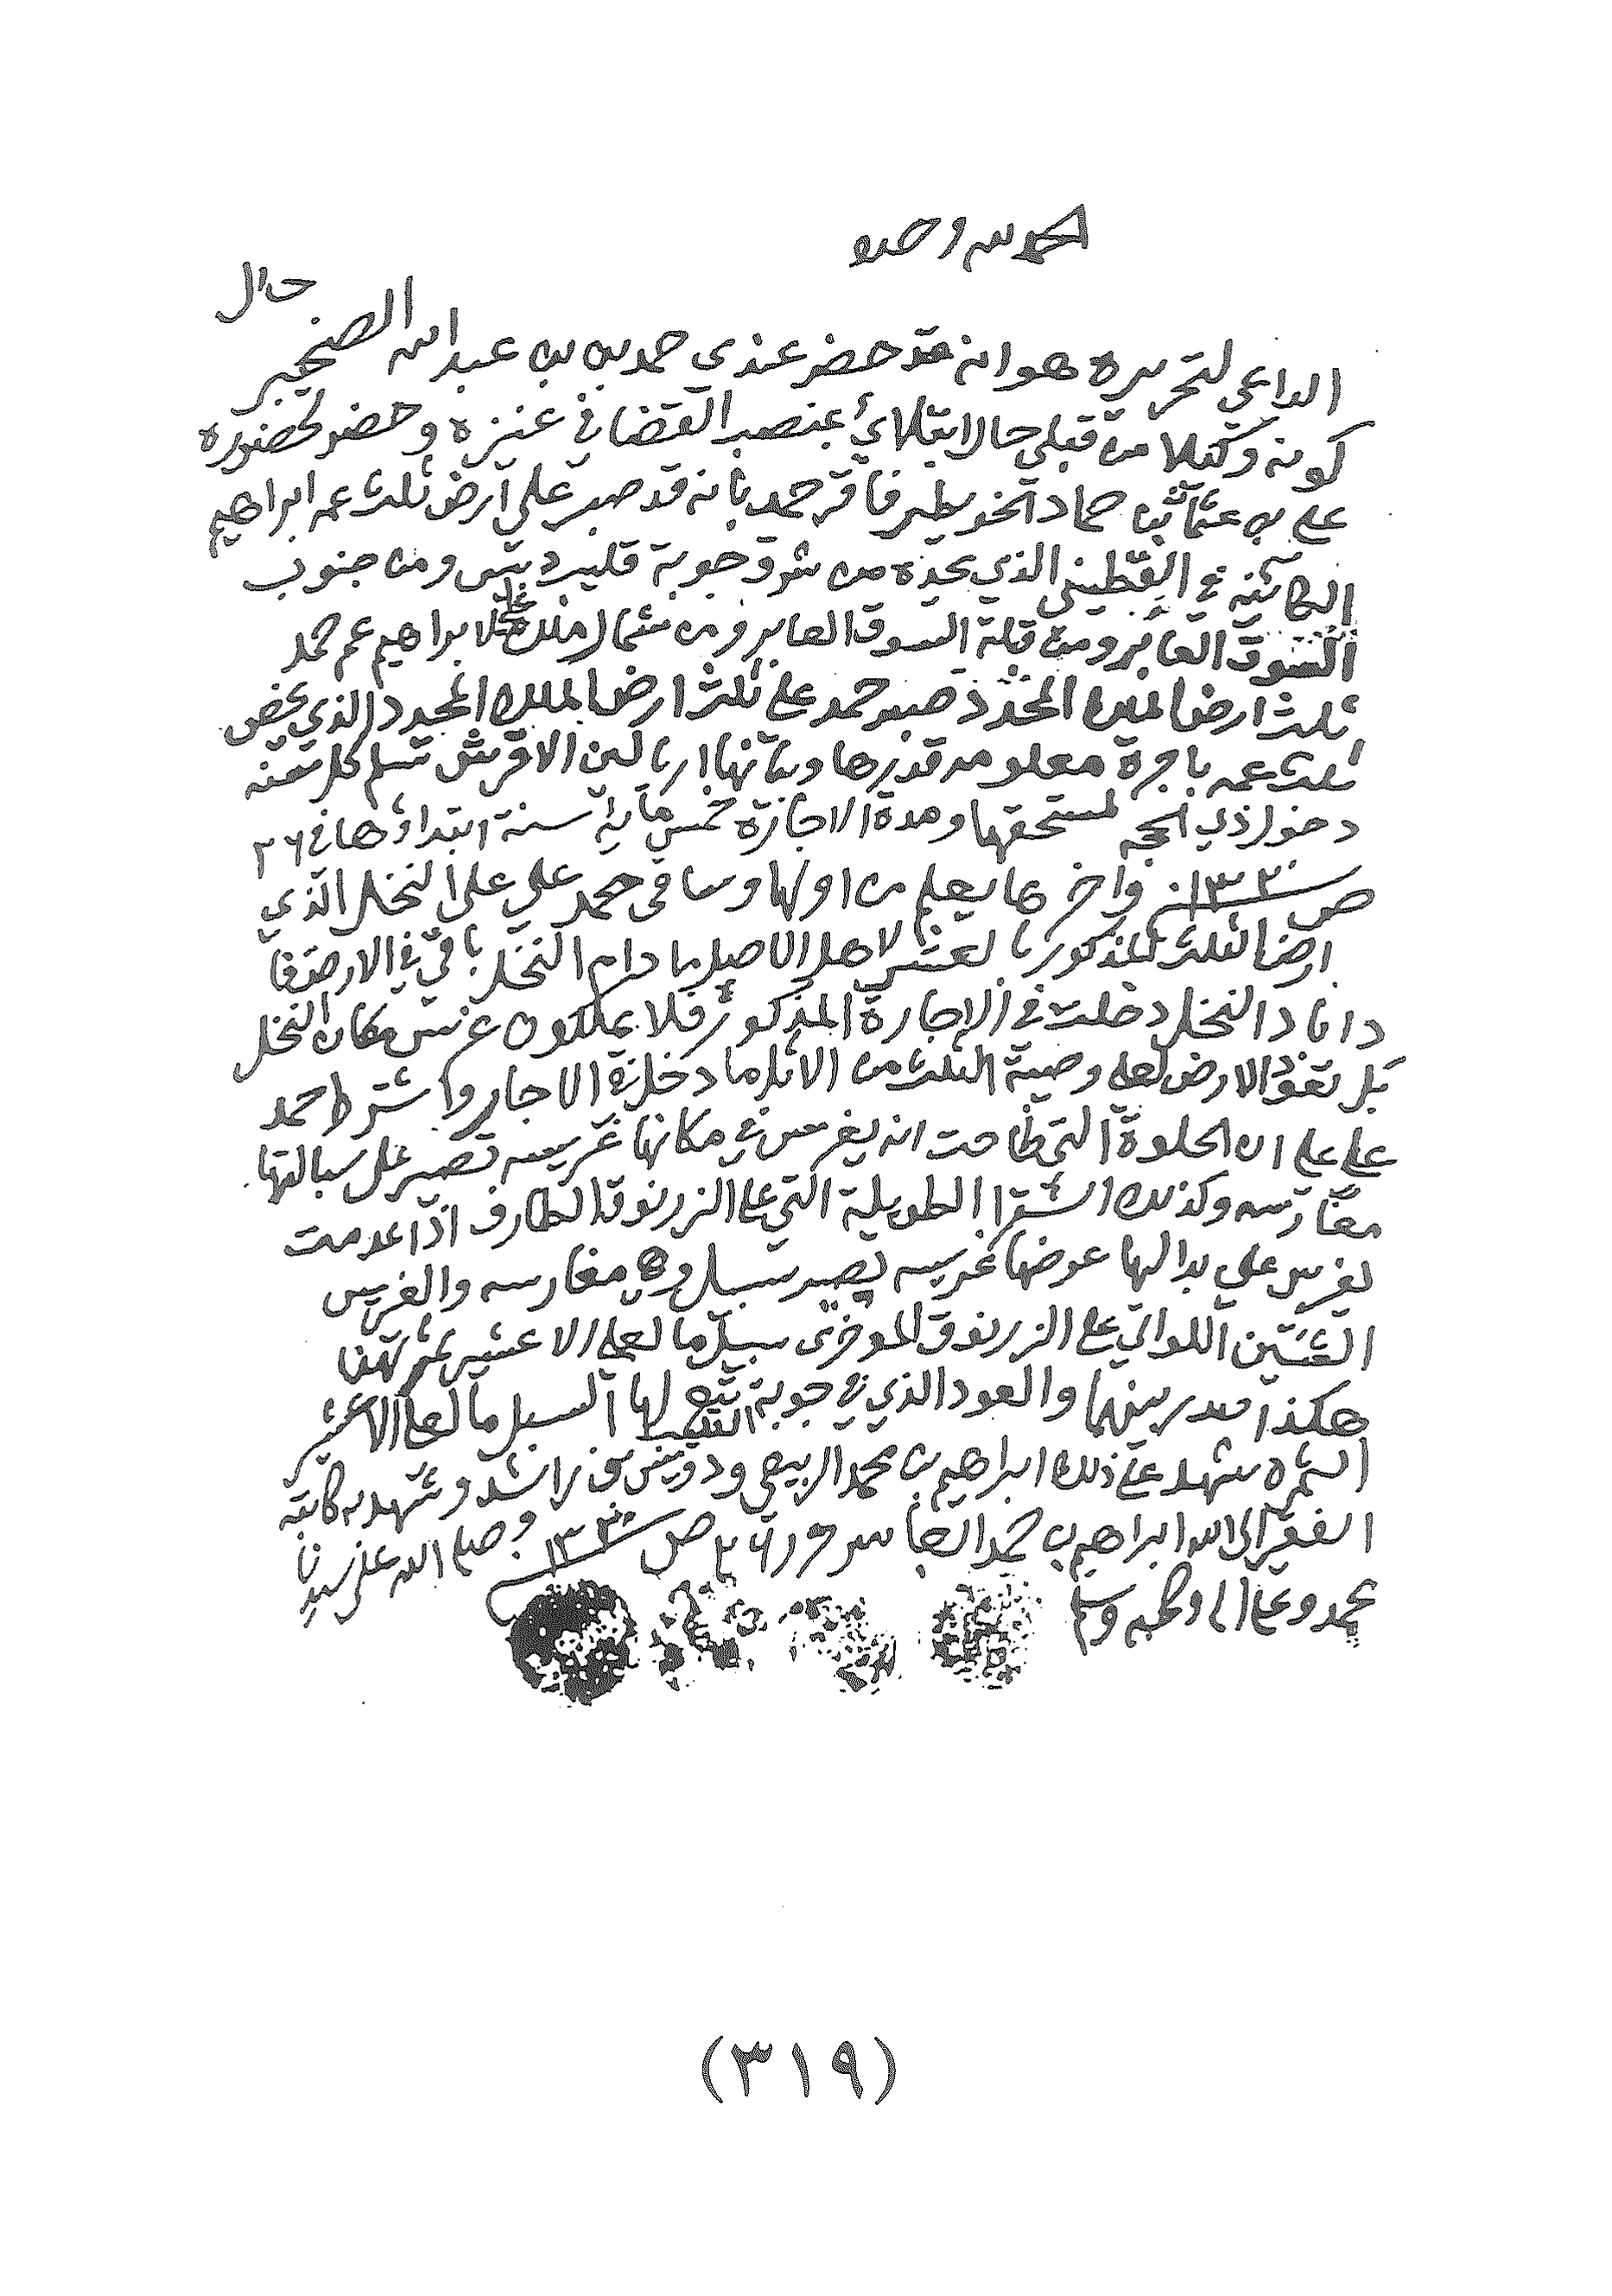 الحمد لله وحده
الداعي لتحريره هو انه قد حضر عندي حمد بن عبد الله الصخيبر حال
كونه وكيلا من قبلي حال ابتلائي بمنصب القضا في عنيزه وحضر لحضوره
علي بن عثمان حماد الخويطر فاقر حمد بانه قد صبر علي ارض ثلث عمه ابراهيم
الكائنه في الذي يحده من شرق جوبة قليب ومن جنوب
السوق العابر ومن قبلة السوق العابر ومن شمال ملك لابراهيم عم حمد
ثلث ارض الملك المحدد صبر حمد علي ثلث ارض الملك المحدد الذي يخص
ثلث عمه باجرة معلومه قدرها وبيانها اريالين الا قرش تسلم كل سنه
دخول ذي الحجه لمستحقها ومدة الاجازة خمس مائة سنة ابتداؤها في ٢٦
ص ١٣٣٠ واخرها يعلم من اولها وساقى حمد علي على النخل الذي
ارض الثلث المذكور بالعشر لاهل الاصل ما دام النخل باقي في الارض فا
دا باد النخل دخلت في الاجارة المذكور فلا يملكون غرس مكان النخل
بل تعود الارض لعلي وصية الثلث من الاثل ما دخل في الاجار واشترط حمد
علي علي ان الحلوة التي طاحت انه يغرس في مكانها غريسه تصير على سبالتها
مغارسه وكذلك الشقرا الطويلة التي على الزرنوق الطارف اذا عدمت
يغرس علي بدالها عوضها غريسه تصير سبيل وهي مغارسه والغريس
الثنتين اللواتي على الزرنوق الموخري سبيل ما لعلي الا عشير ثمرتهن
هكذا صدر بينهما والعود الذي في جوبة القليب لها السبل ما لعلي الا عشير
الثمره شهد على ذلك ابراهيم بن محمد الربيعي ودويس بن راشد وشهد به كاتبه
الفقير الى الله ابراهيم بن حمد الجاسر حرر ٢٦ ص ١٣٣٠ وصلى الله على سيدنا
محمد وعلى اله وصحبه وسلم
(٣١٩)